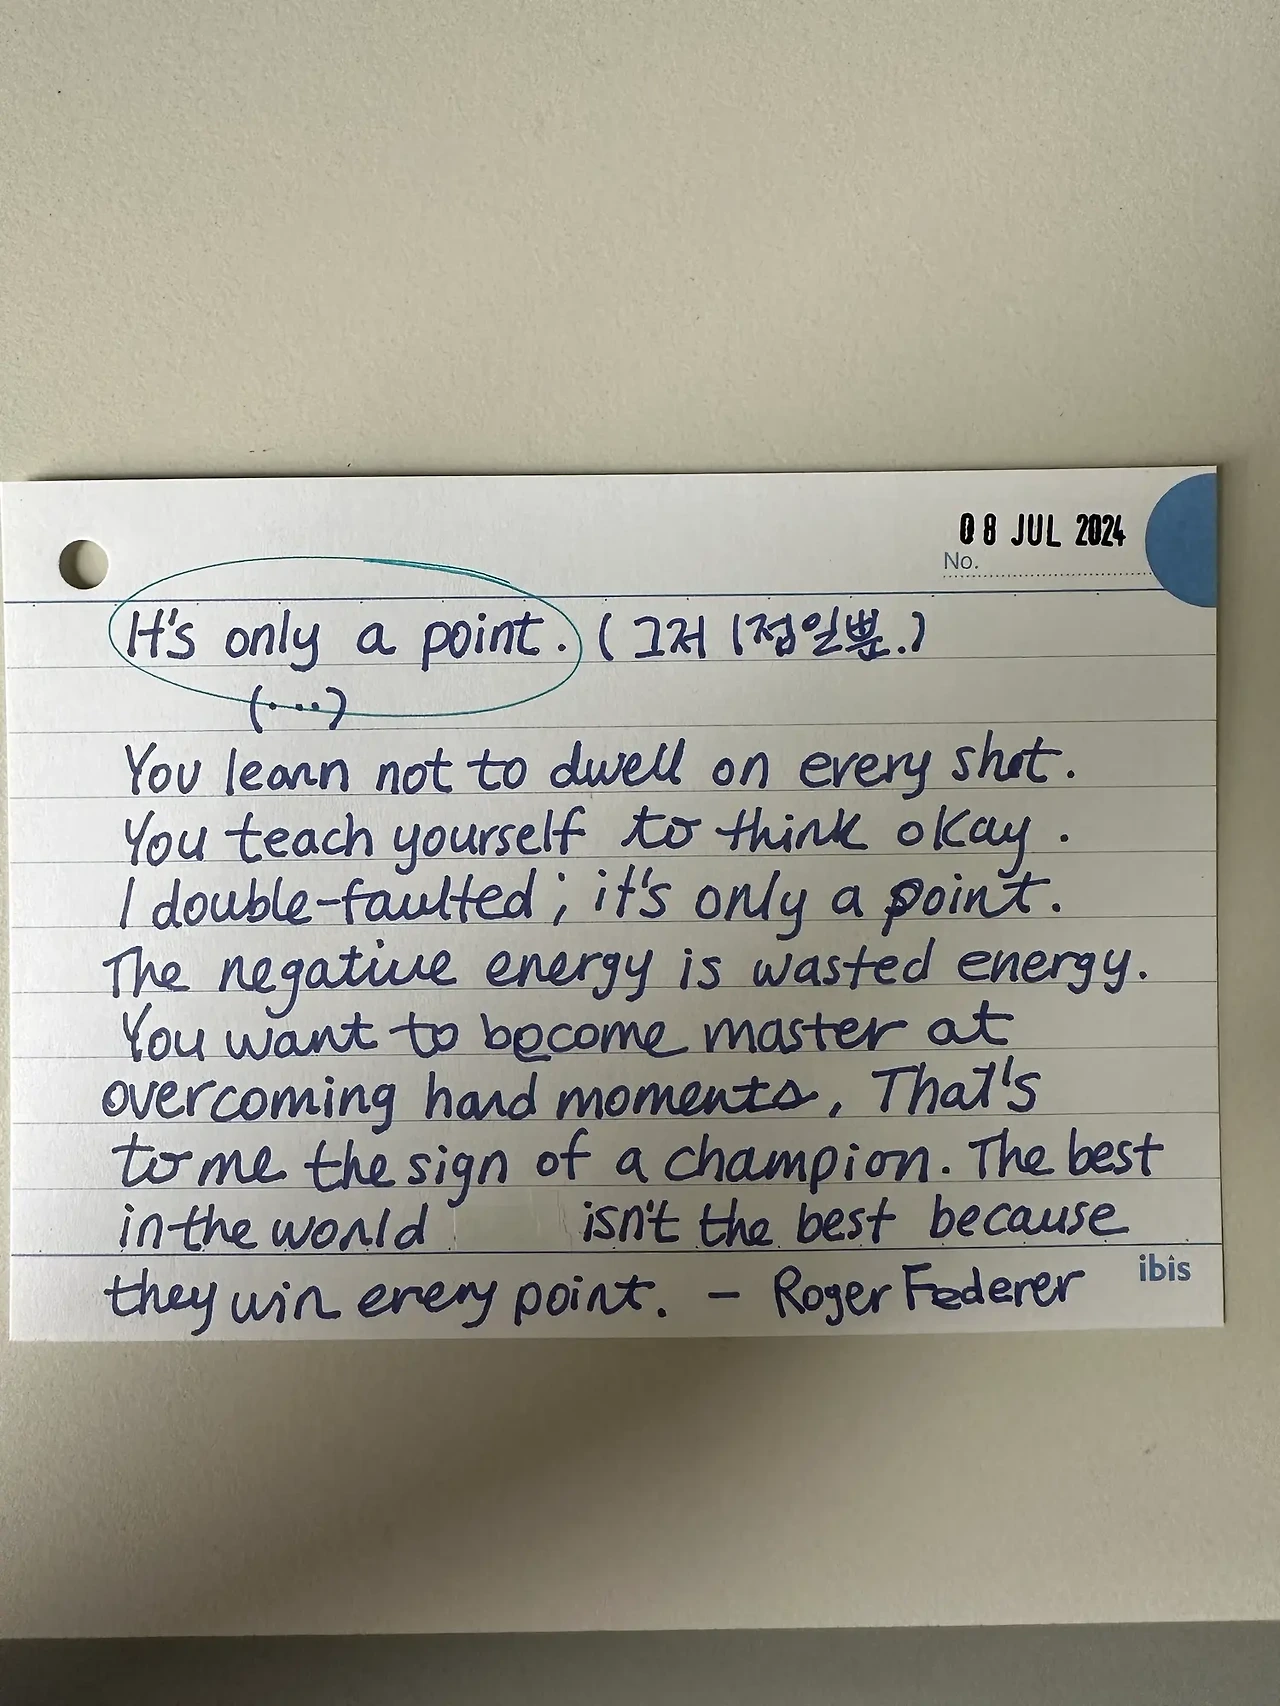 08 JUL 2024
No.
It's only a point. (그저 1점일뿐.)
(...)
You learn not to dwell on every shot.
You teach yourself to think okay.
I double-faulted; it's only a point.
The negative energy is wasted energy.
You want to become master at
overcoming hard moments, That's
to me the sign of a champion. The best
in the world isn't the best because
they win every point. - Roger Federer
ibis